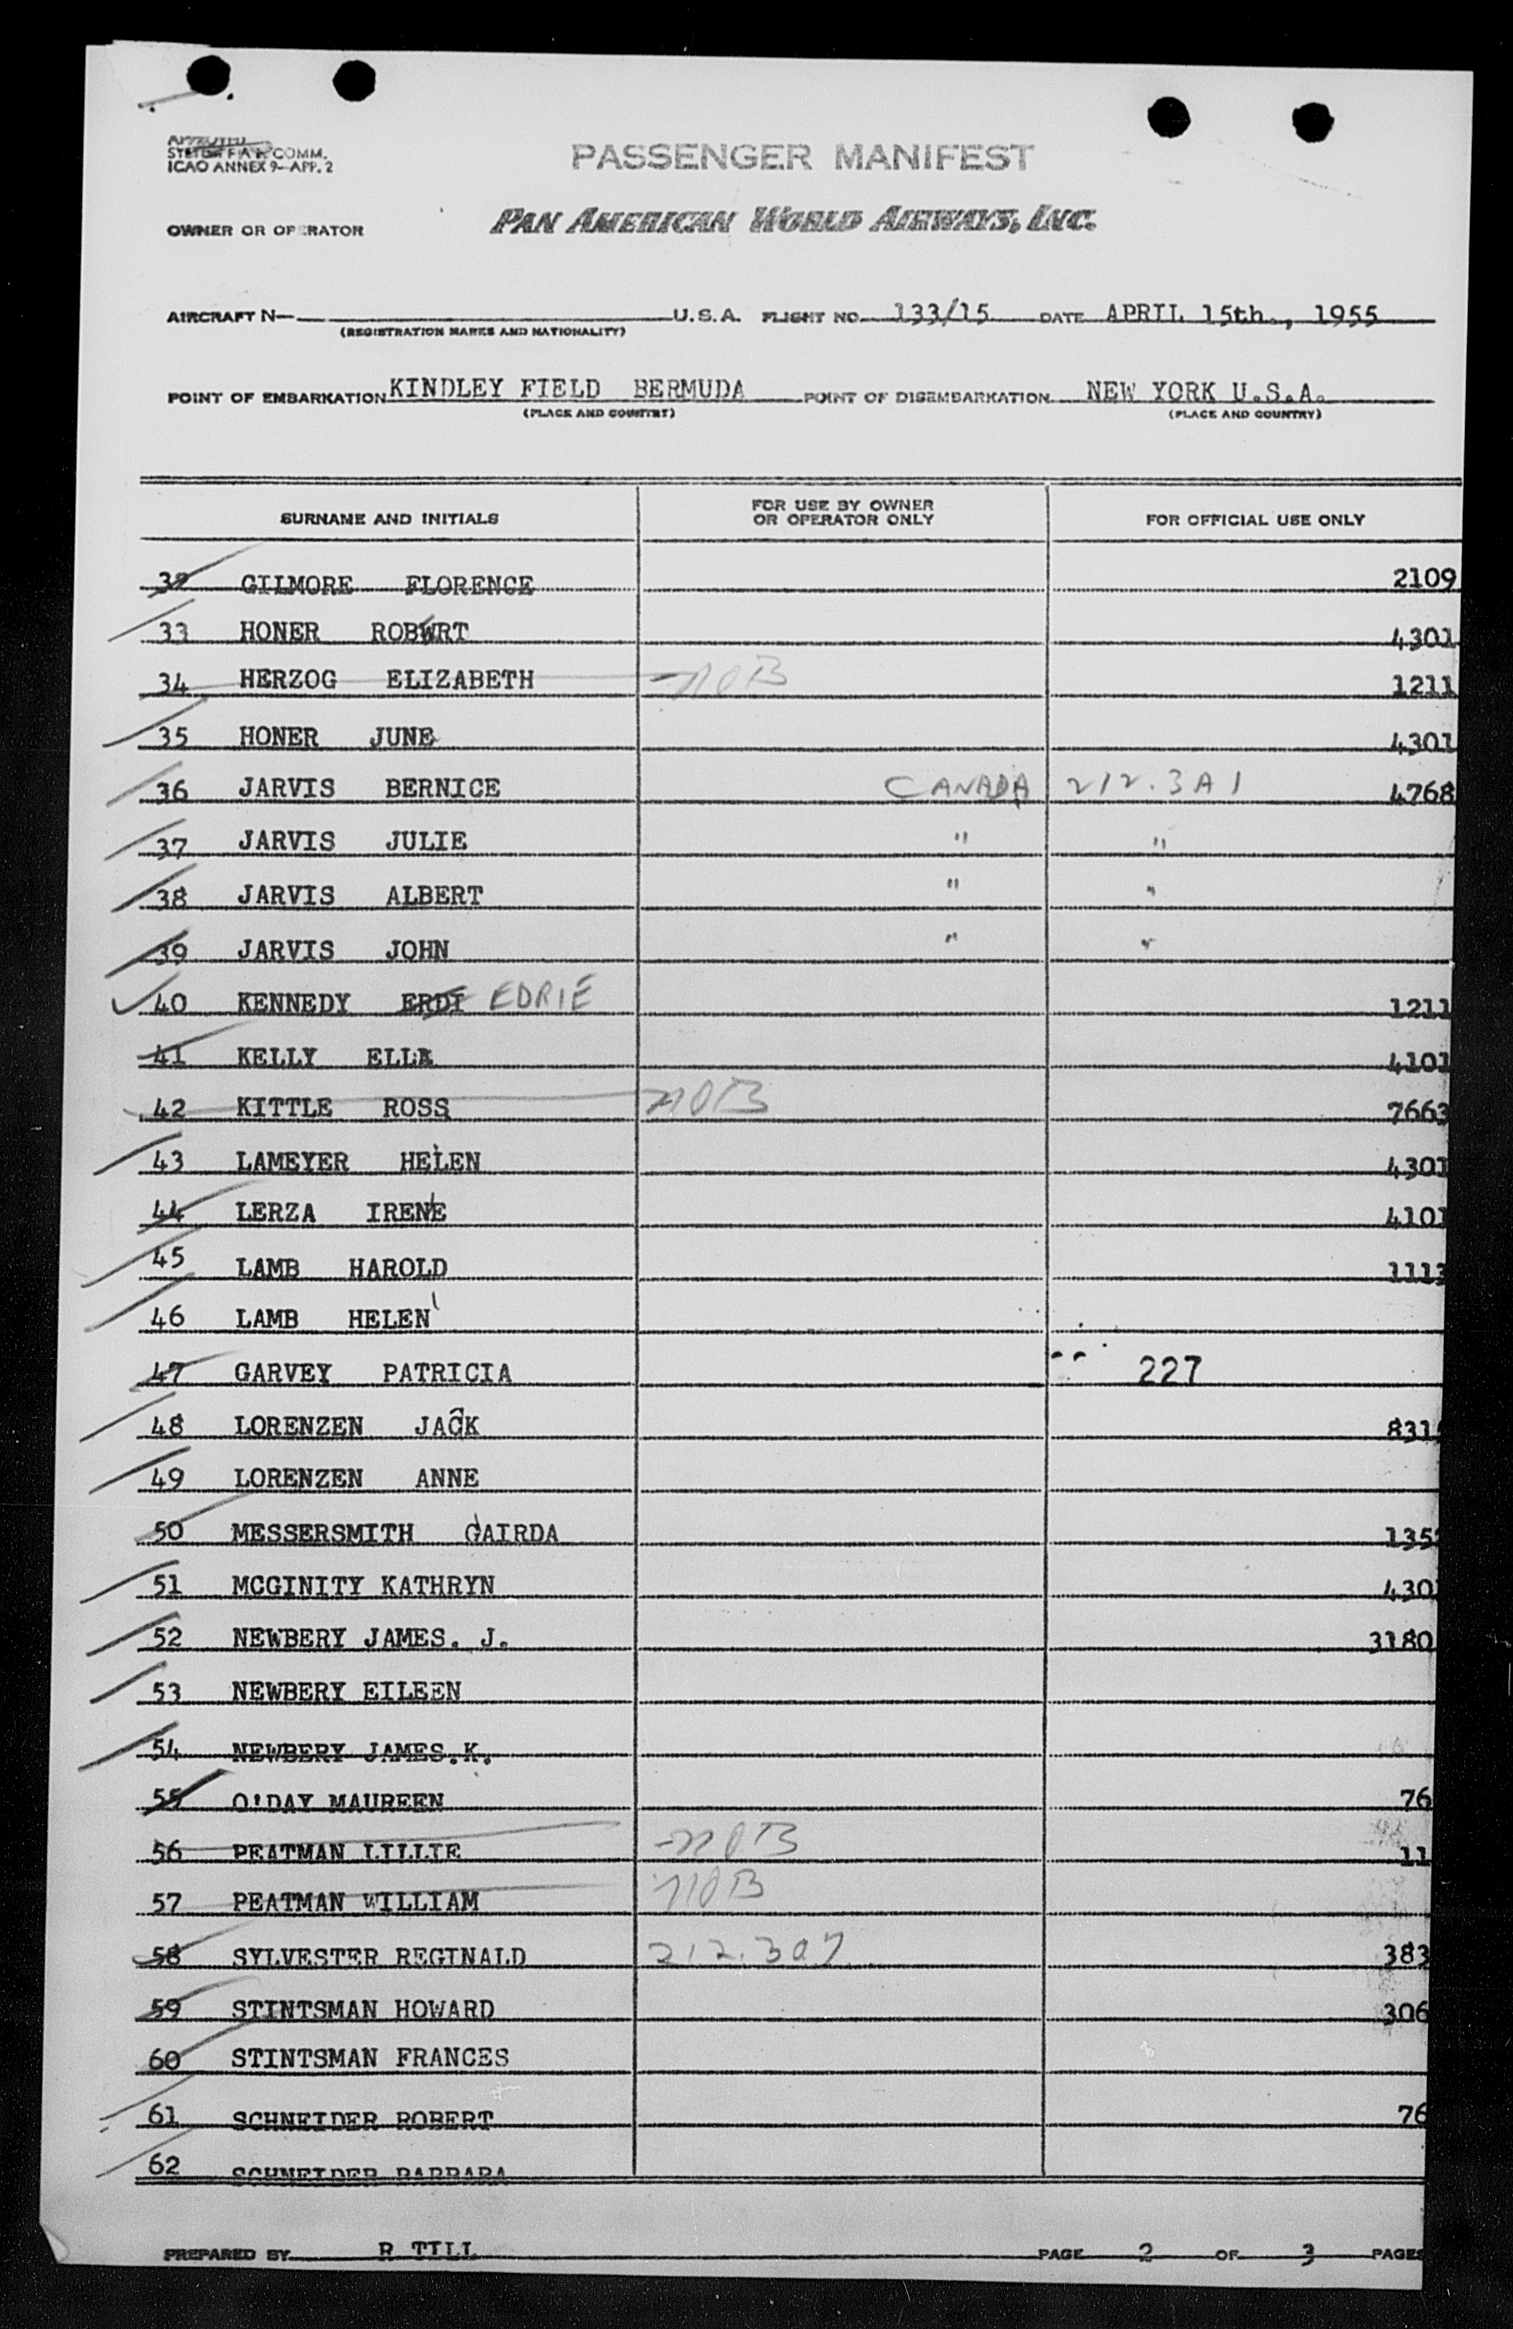 STATE COMM.
ICAO ANNEX 9-APP. 2
PASSENGER MANIFEST
OWNER OR OPERATOR PAN AMERICAN WORLD AIRWAYS, INC.
AIRCRAFT N- U.S.A. FLIGHT NO. 133/15 DATE APRIL 15th., 1955
(REGISTRATION MARKS AND NATIONALITY)
POINT OF EMBARKATION KINDLEY FIELD BERMUDA POINT OF DISEMBARKATION NEW YORK U.S.A.
(PLACE AND COUNTRY) (PLACE AND COUNTRY)
SURNAME AND INITIALS FOR USE BY OWNER OR OPERATOR ONLY FOR OFFICIAL USE ONLY
32 GILMORE FLORENCE 2109
33 HONER ROBWRT 4301
34 HERZOG ELIZABETH NOB 1211
35 HONER JUNE 4301
36 JARVIS BERNICE CANADA 212.3A1 4768
37 JARVIS JULIE " "
38 JARVIS ALBERT " "
39 JARVIS JOHN " "
40 KENNEDY ERDI EDRIE 1211
41 KELLY ELLA 4101
42 KITTLE ROSS NOB 7663
43 LAMEYER HELEN 4301
44 LERZA IRENE 4101
45 LAMB HAROLD 1113
46 LAMB HELEN
47 GARVEY PATRICIA 227
48 LORENZEN JACK 831
49 LORENZEN ANNE
50 MESSERSMITH GAIRDA 135
51 MCGINITY KATHRYN 430
52 NEWBERY JAMES. J. 3180
53 NEWBERY EILEEN
54 NEWBERY JAMES.K.
55 O'DAY MAUREEN 76
56 PEATMAN LILLIE NOB 11
57 PEATMAN WILLIAM NOB
58 SYLVESTER REGINALD 212.3a7 383
59 STINTSMAN HOWARD 306
60 STINTSMAN FRANCES
61 SCHNEIDER ROBERT 76
62 SCHNEIDER BARBARA
PREPARED BY R TILL PAGE 2 OF 3 PAGES